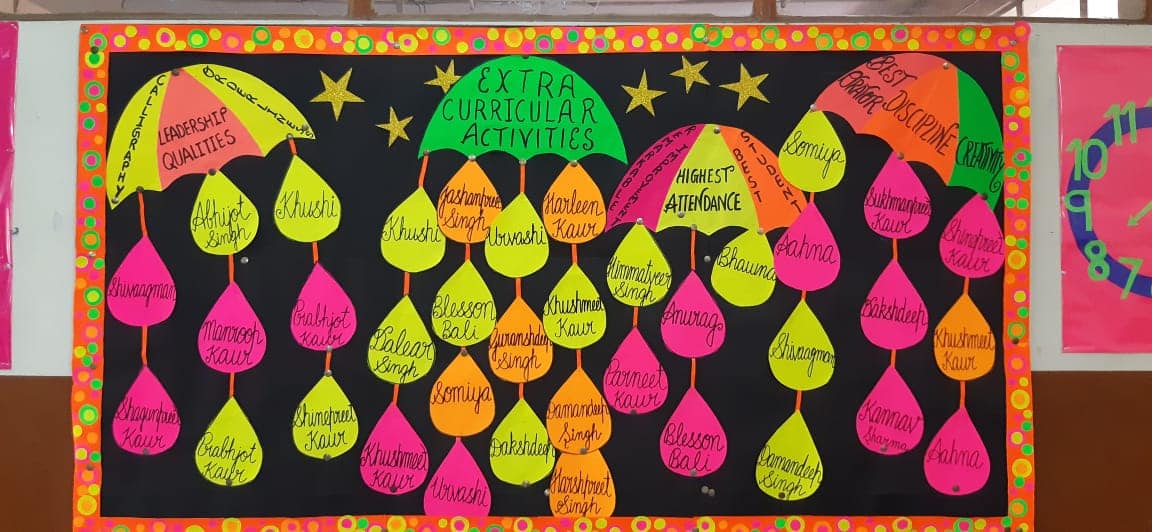 CALLIGRAPHY
LEADERSHIP
QUALITIES
ORDERLINESS
Shivaagman
Shagunpreet
Kaur
Abhijot
Singh
Manroop
Kaur
Prabhjot
Kaur
Khushi
Prabhjot
Kaur
Shinepreet
Kaur
EXTRA
CURRICULAR
ACTIVITIES
Khushi
Balear
Singh
Khushmeet
Kaur
Jashanpreet
Singh
Blesson
Bali
Somiya
Urvashi
Urvashi
Guranshdeep
Singh
Dakshdeep
Harleen
Kaur
Khushmeet
Kaur
Damandeep
Singh
Harshpreet
Singh
REMARKABLE
HIGHEST
ATTENDANCE
BEST
STUDENT
Himmatveer
Singh
Parneet
Kaur
Anurag
Blesson
Bali
Bhawna
BEST
ORATOR
DISCIPLINE
CREATIVITY
Somiya
Sahna
Shivaagman
Damandeep
Singh
Sukhmanpreet
Kaur
Dakshdeep
Kannav
Sharma
Shinepreet
Kaur
Khushmeet
Kaur
Sahna
11
10
9
8
7